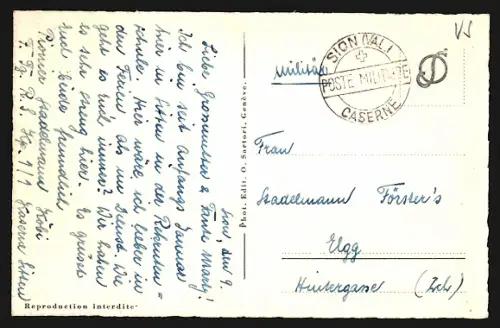 Sion, den 9.
Liebe Grossmutter & Tante Marty!
Ich bin seit Anfangs Januar
hier in Sitten in der Rekruten=
schule. Hier wäre ich lieber in
den Ferien, als im Dienst. Wie
geht es euch immer? Wir haben
es sehr streng hier. Es grüsst
euch beide freundlich
Pionier Stadelmann Köbi
R.S. Kp. 1/1 Kaserne Sitten
Reproduction interdite
Phot. Edit. O. Sartori, Genève.
SION (VAL.)
POSTE MILITAIRE
CASERNE
Militär
VS
Frau
Stadelmann Förster's
Elgg
Hintergasse (Zch.)